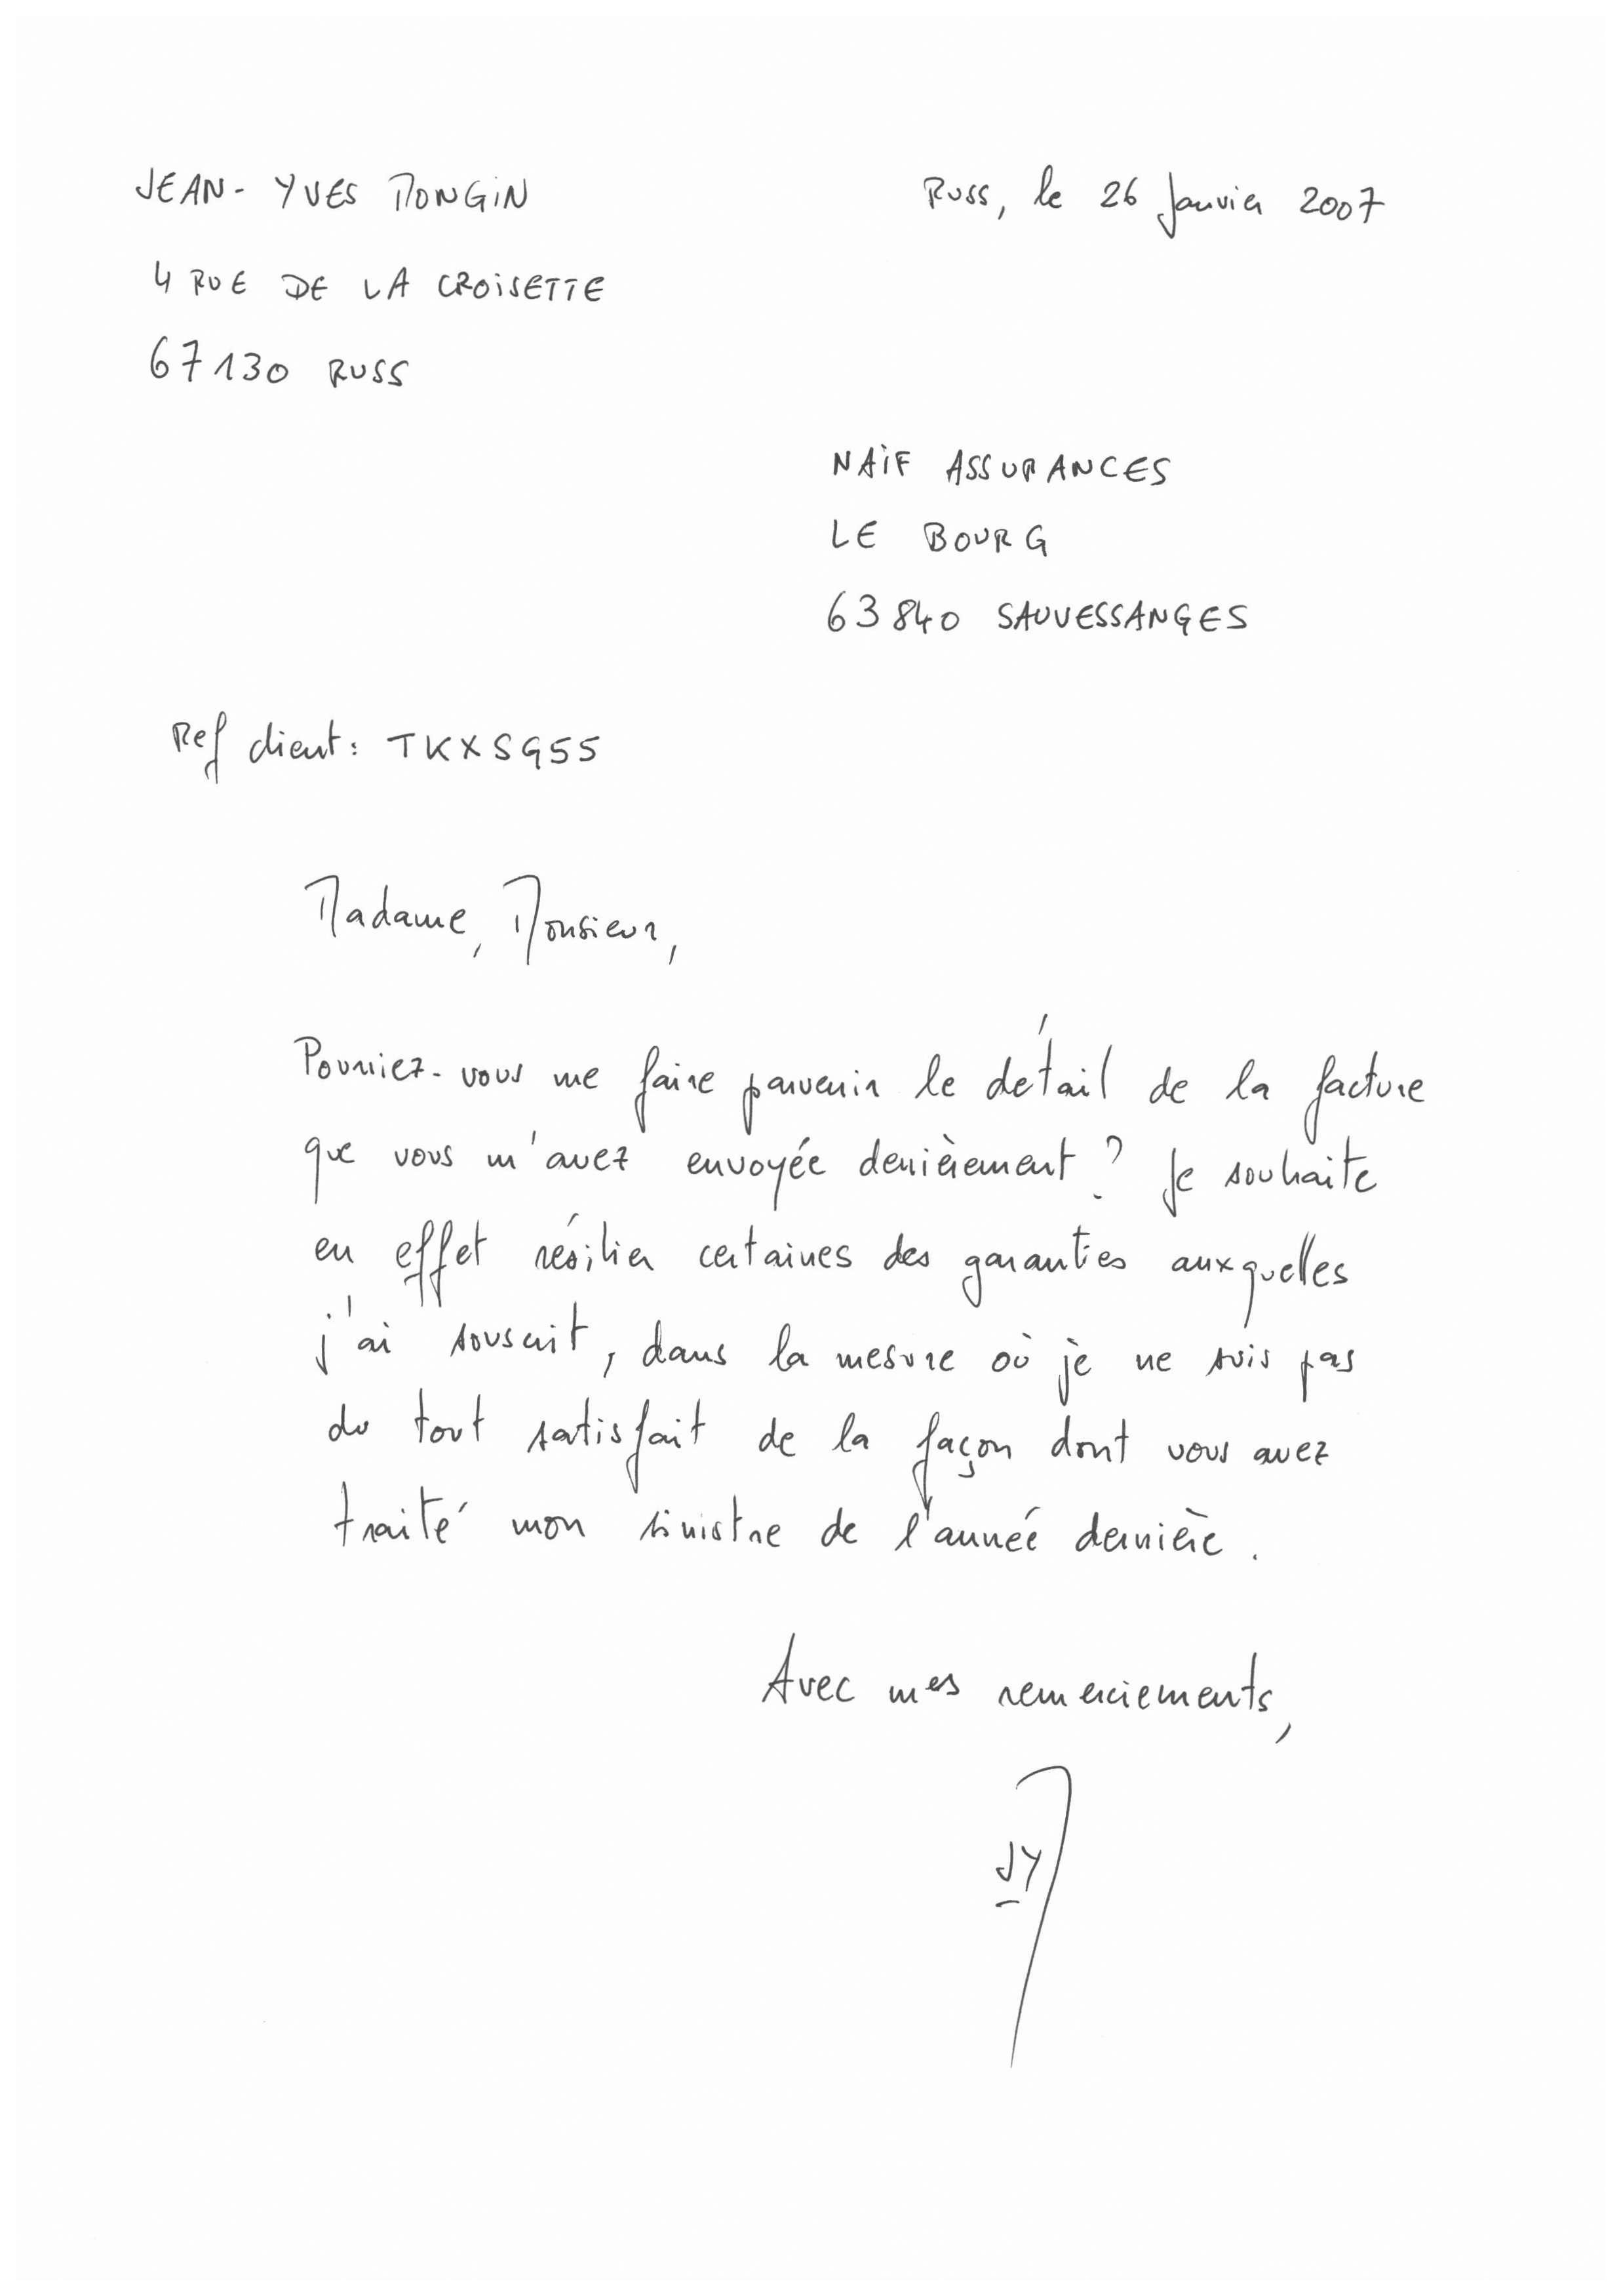 JEAN-YVES MONGIN
Russ, le 26 Janvier 2007
4 RUE DE LA CROISETTE
67130 RUSS
NAIF ASSURANCES
LE BOURG
63840 SAUVESSANGES
Ref client : TKXSG55
Madame, Monsieur,
Pourriez-vous me faire parvenir le détail de la facture
que vous m'avez envoyée dernièrement ? Je souhaite
en effet résilier certaines des garanties auxquelles
j'ai souscrit, dans la mesure où je ne suis pas
du tout satisfait de la façon dont vous avez
traité mon sinistre de l'année dernière.
Avec mes remerciements,
JY